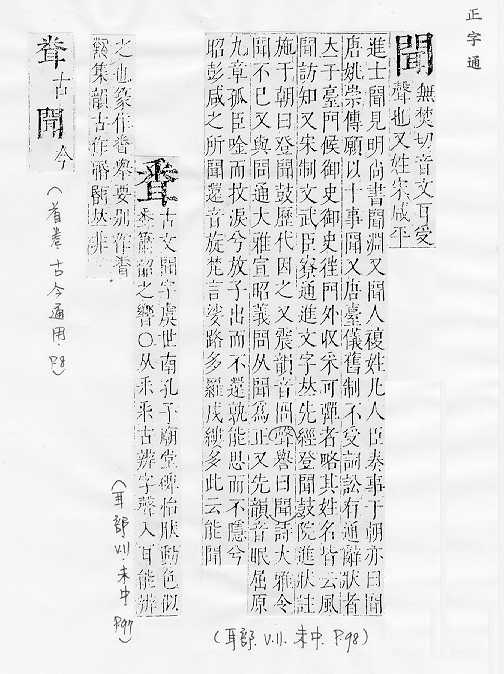 正字通
聞 無焚切音文耳受
聲也又姓宋咸平
進士聞見明尚書聞淵又聞人複姓凡人臣奏事于朝亦曰聞
唐姚崇傳願以十事聞又唐臺儀舊制不受詞訟有通辭狀者
大于臺門候御史御史徑門外收采可彈者略其姓名皆云風
聞訪知又宋制文武臣寮通進文字竝先經登聞鼓院進狀註
施于朝曰登聞鼓歷代因之又震韻音問聲譽曰聞詩大雅令
聞不已又與問通大雅宣昭義問从聞爲正又先韻音眠屈原
九章孤臣唫而抆淚兮放子出而不還孰能思而不隱兮
昭彭咸之所聞還音旋梵言娑路多羅戍縷多此云能聞
(耳部. V.11. 未中. P.98)
古文聞字虞世南孔子廟堂碑怡肰動色似
奏簫韶之響○从釆釆古辨字聲入耳能辨
(耳部 V.11. 未中 P.97)
之也篆作 擧要別作
集韻古作 竝非
古聞今
古今通用. P8)